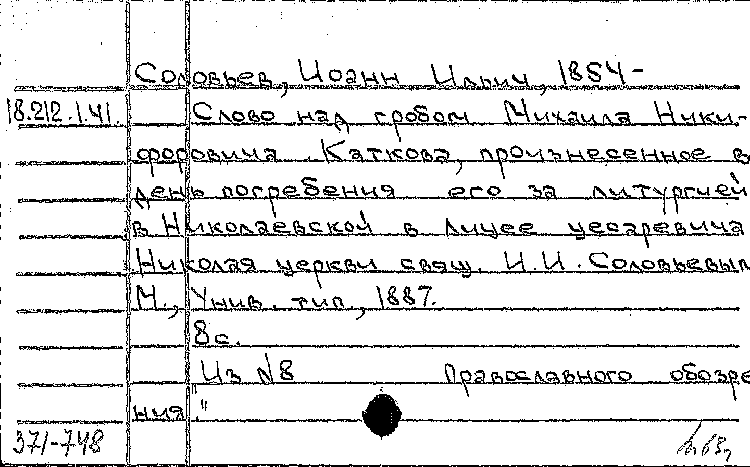 Соловьев, Иоанн Ильич, 1854-
18.212.1.41. Слово над гробом Михаила Ники-
форовича Каткова, произнесенное в
день погребения его за литургией
в Николаевской в лицее цесаревича
Николая церкви свящ. И.И. Соловьевым
М., Унив. тип., 1887.
8с.
Из N8 Православного обозре
ния."
371-748